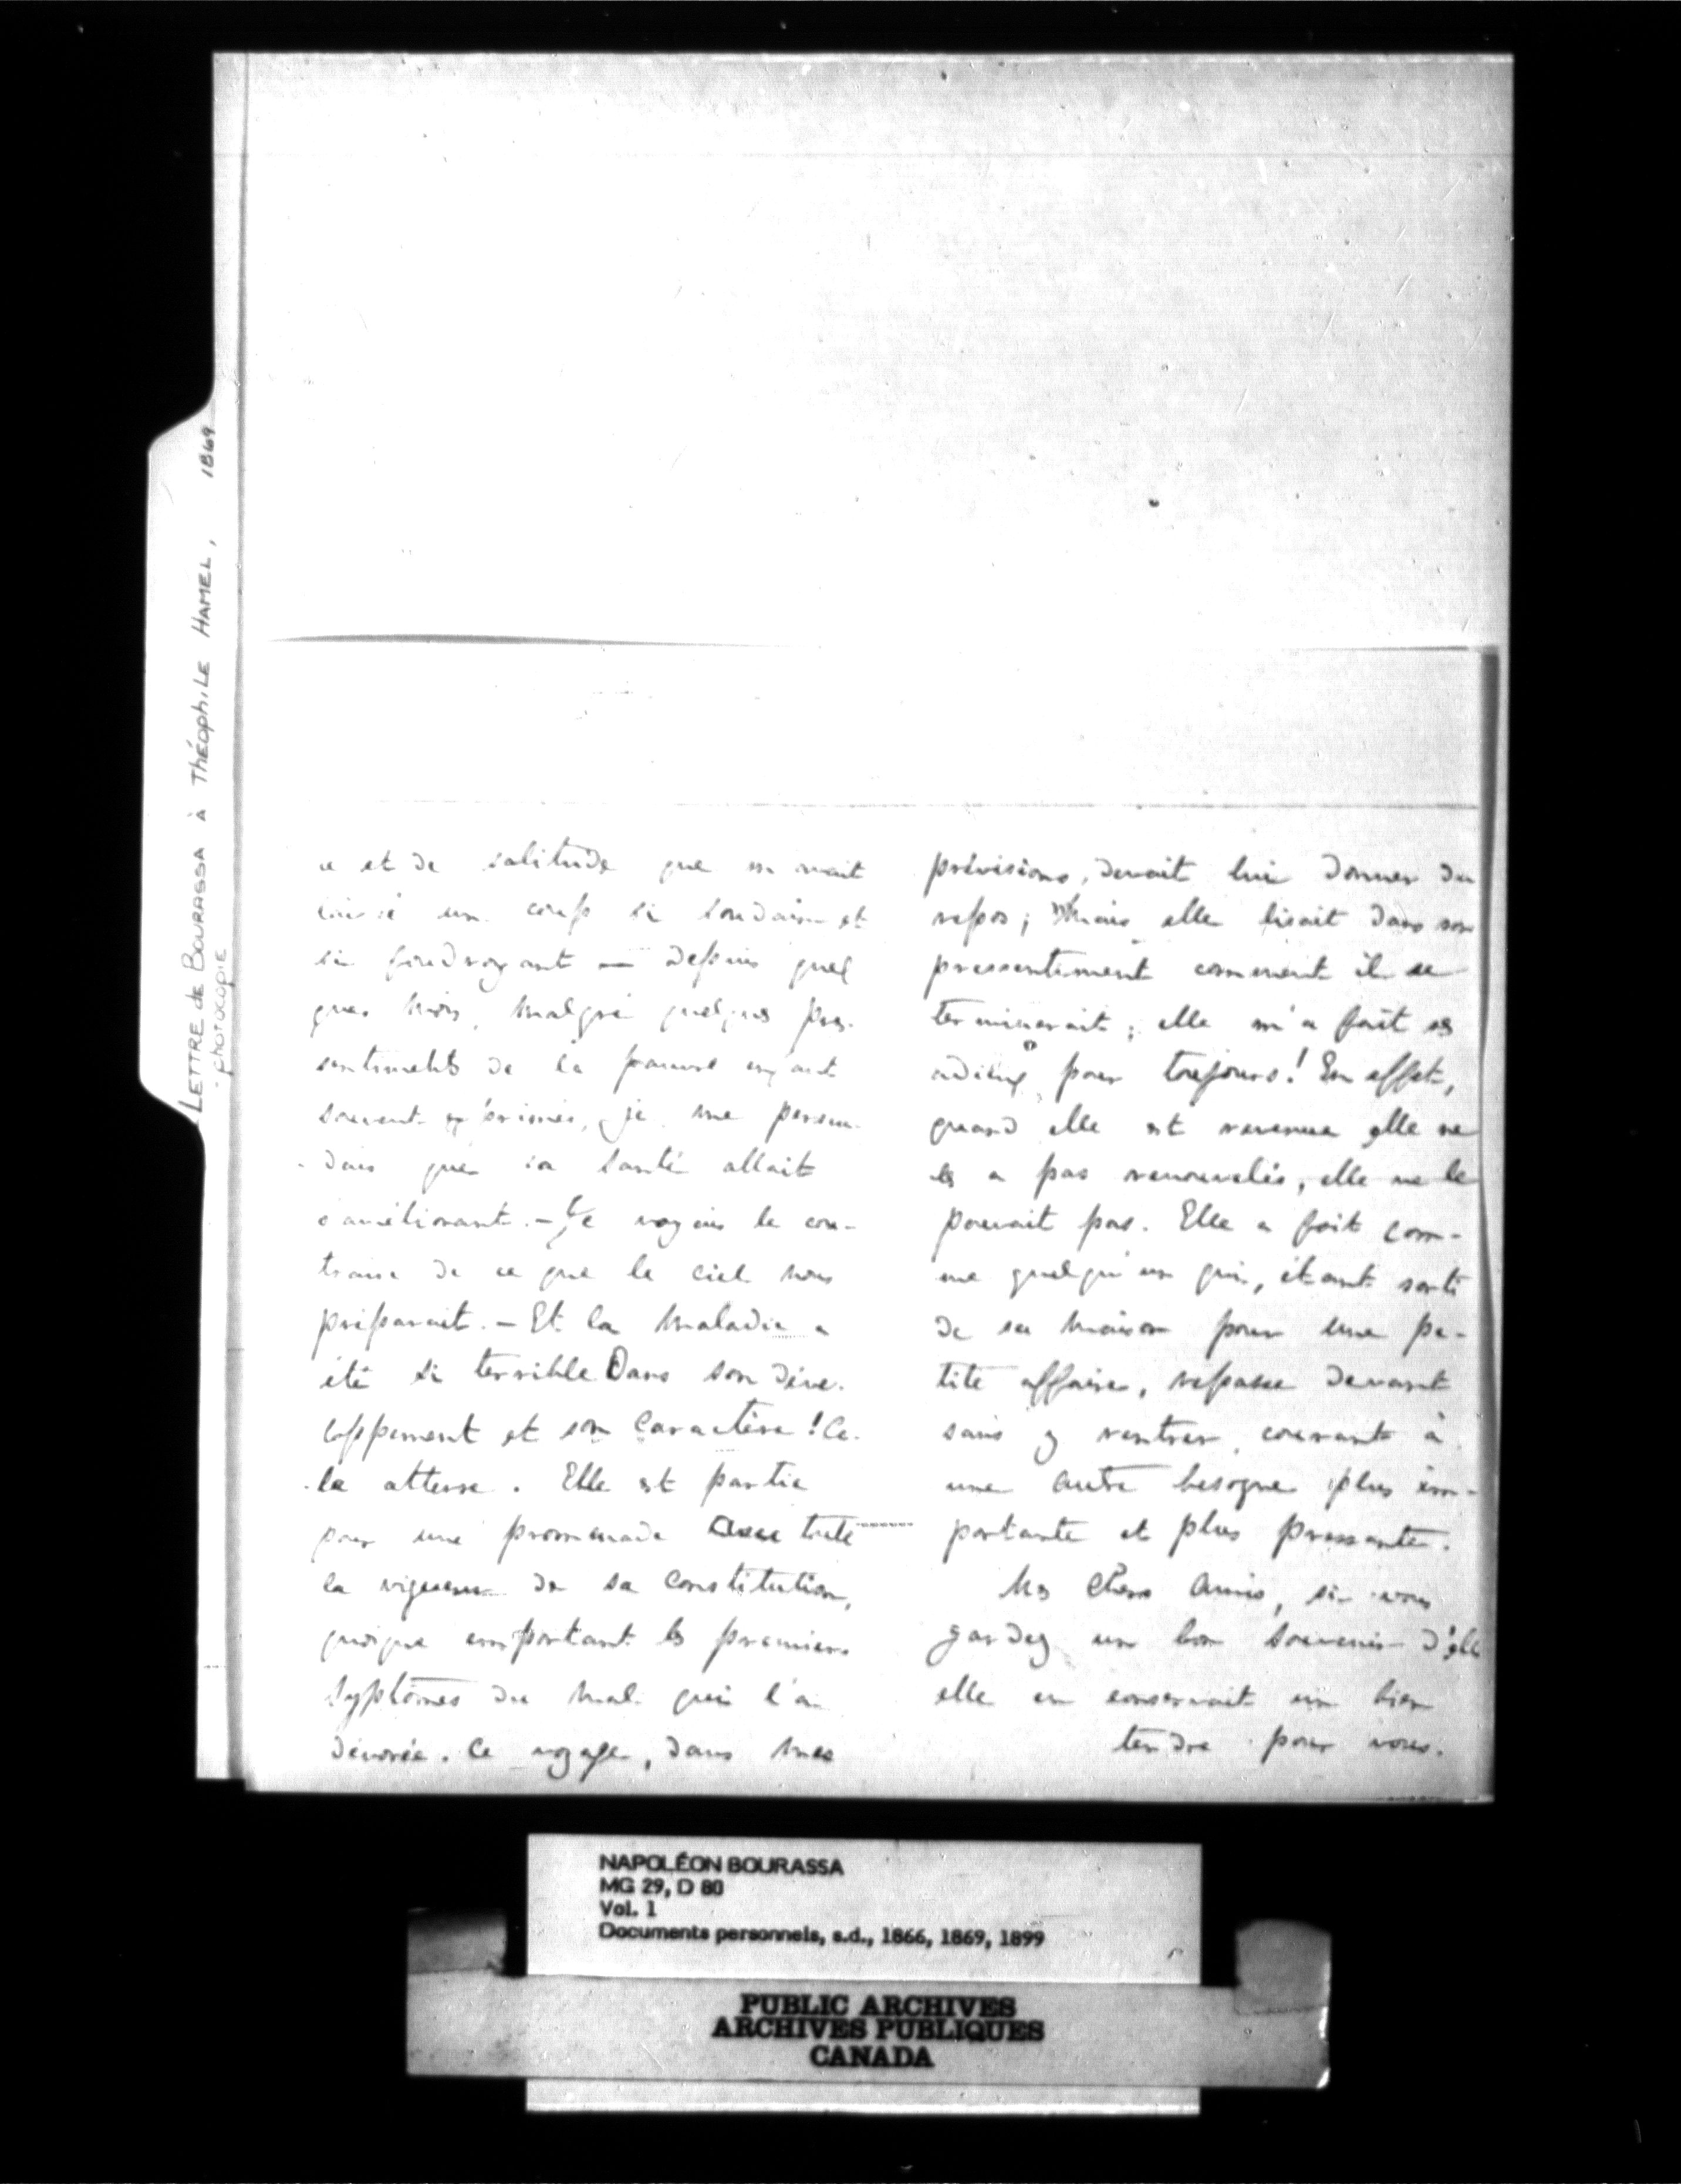 LETTRE de BOURASSA à ThéophiLe HAMEL, 1869
- photocopie
ce et de solitude que m'avait
laissé un coup si soudain et
si foudroyant — Depuis quel
ques mois, malgré quelques pres-
sentiments de la pauvre enfant
souvent exprimés, je me persua-
-dais que sa santé allait
s'améliorant. — Je voyais le con-
traire de ce que le ciel nous
préparait. — Et la maladie a
été si terrible Dans son déve-
loppement et son caractère ! Ce-
-la atterre. Elle est partie
pour une promenade avec toute
la vigueur de sa constitution,
quoique emportant les premiers
syptômes du mal qui l'a
dévorée. Ce voyage, dans mes
prévisions, devait lui donner du
repos; Mais elle lisait dans son
pressentiment comment il se
terminerait; elle m'a fait ses
adieux pour toujours! En effet,
quand elle est revenue elle ne
les a pas renouvelés, elle ne le
pouvait pas. Elle a fait com-
me quelqu'un qui, étant sorti
de sa maison pour une pe-
tite affaire, repasse devant
sans y rentrer, courant à
une autre besogne plus im-
portante et plus pressante.
Mes Chers Amis, si vous
gardez un bon souvenir d'elle
elle en conservait un bien
tendre pour vous.
NAPOLÉON BOURASSA
MG 29, D 80
Vol. 1
Documents personnels, s.d., 1866, 1869, 1899
PUBLIC ARCHIVES
ARCHIVES PUBLIQUES
CANADA